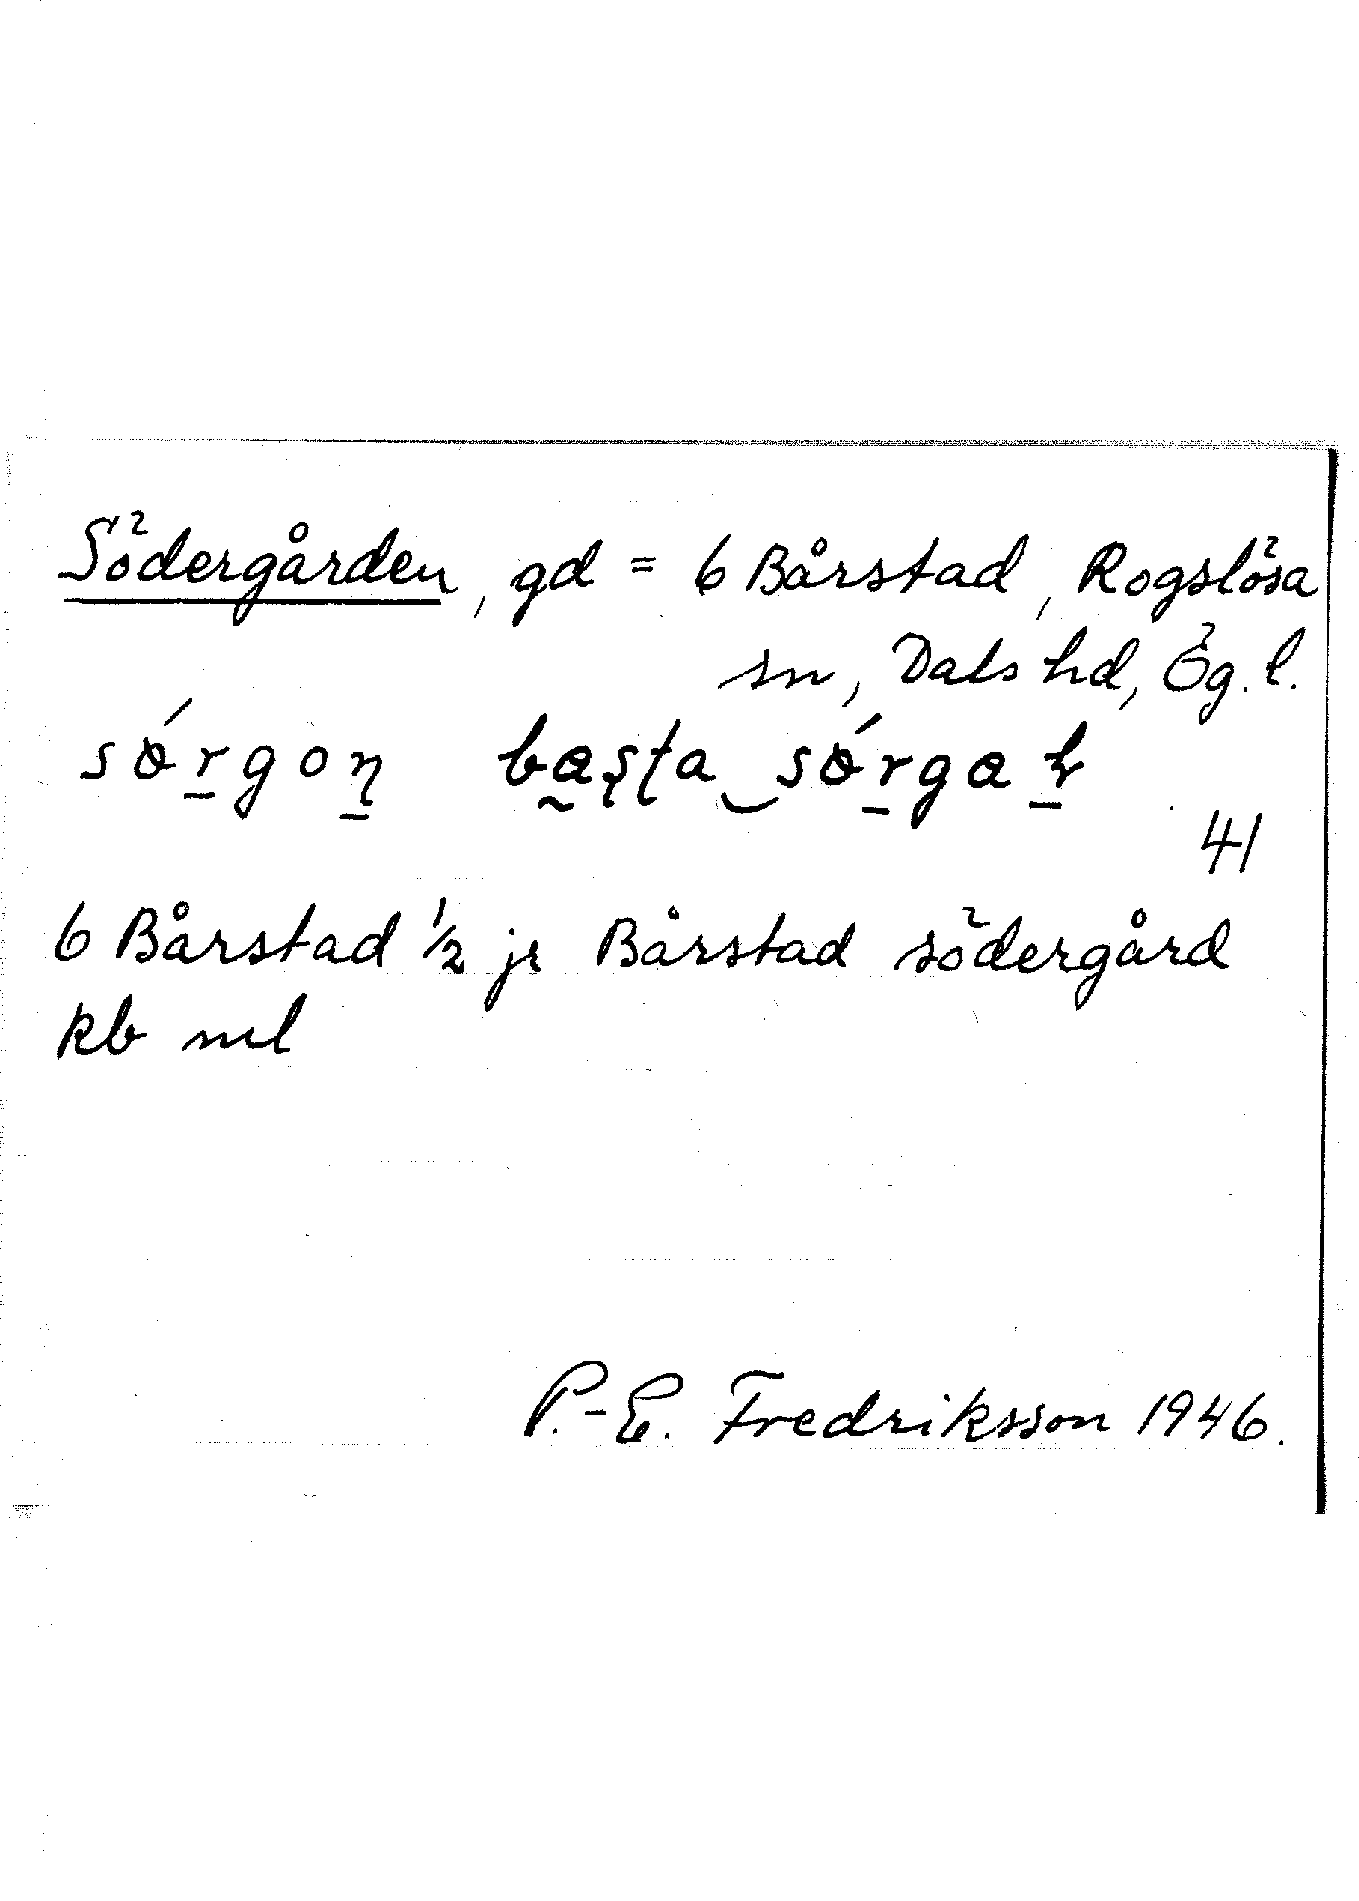 Södergården, gd = 6 Bårstad, Rogslösa
sn, Dals hd, Ög. l.
41
6 Bårstad 1/2 jr Bårstad södergård
kb ml
P.-E. Fredriksson 1946.